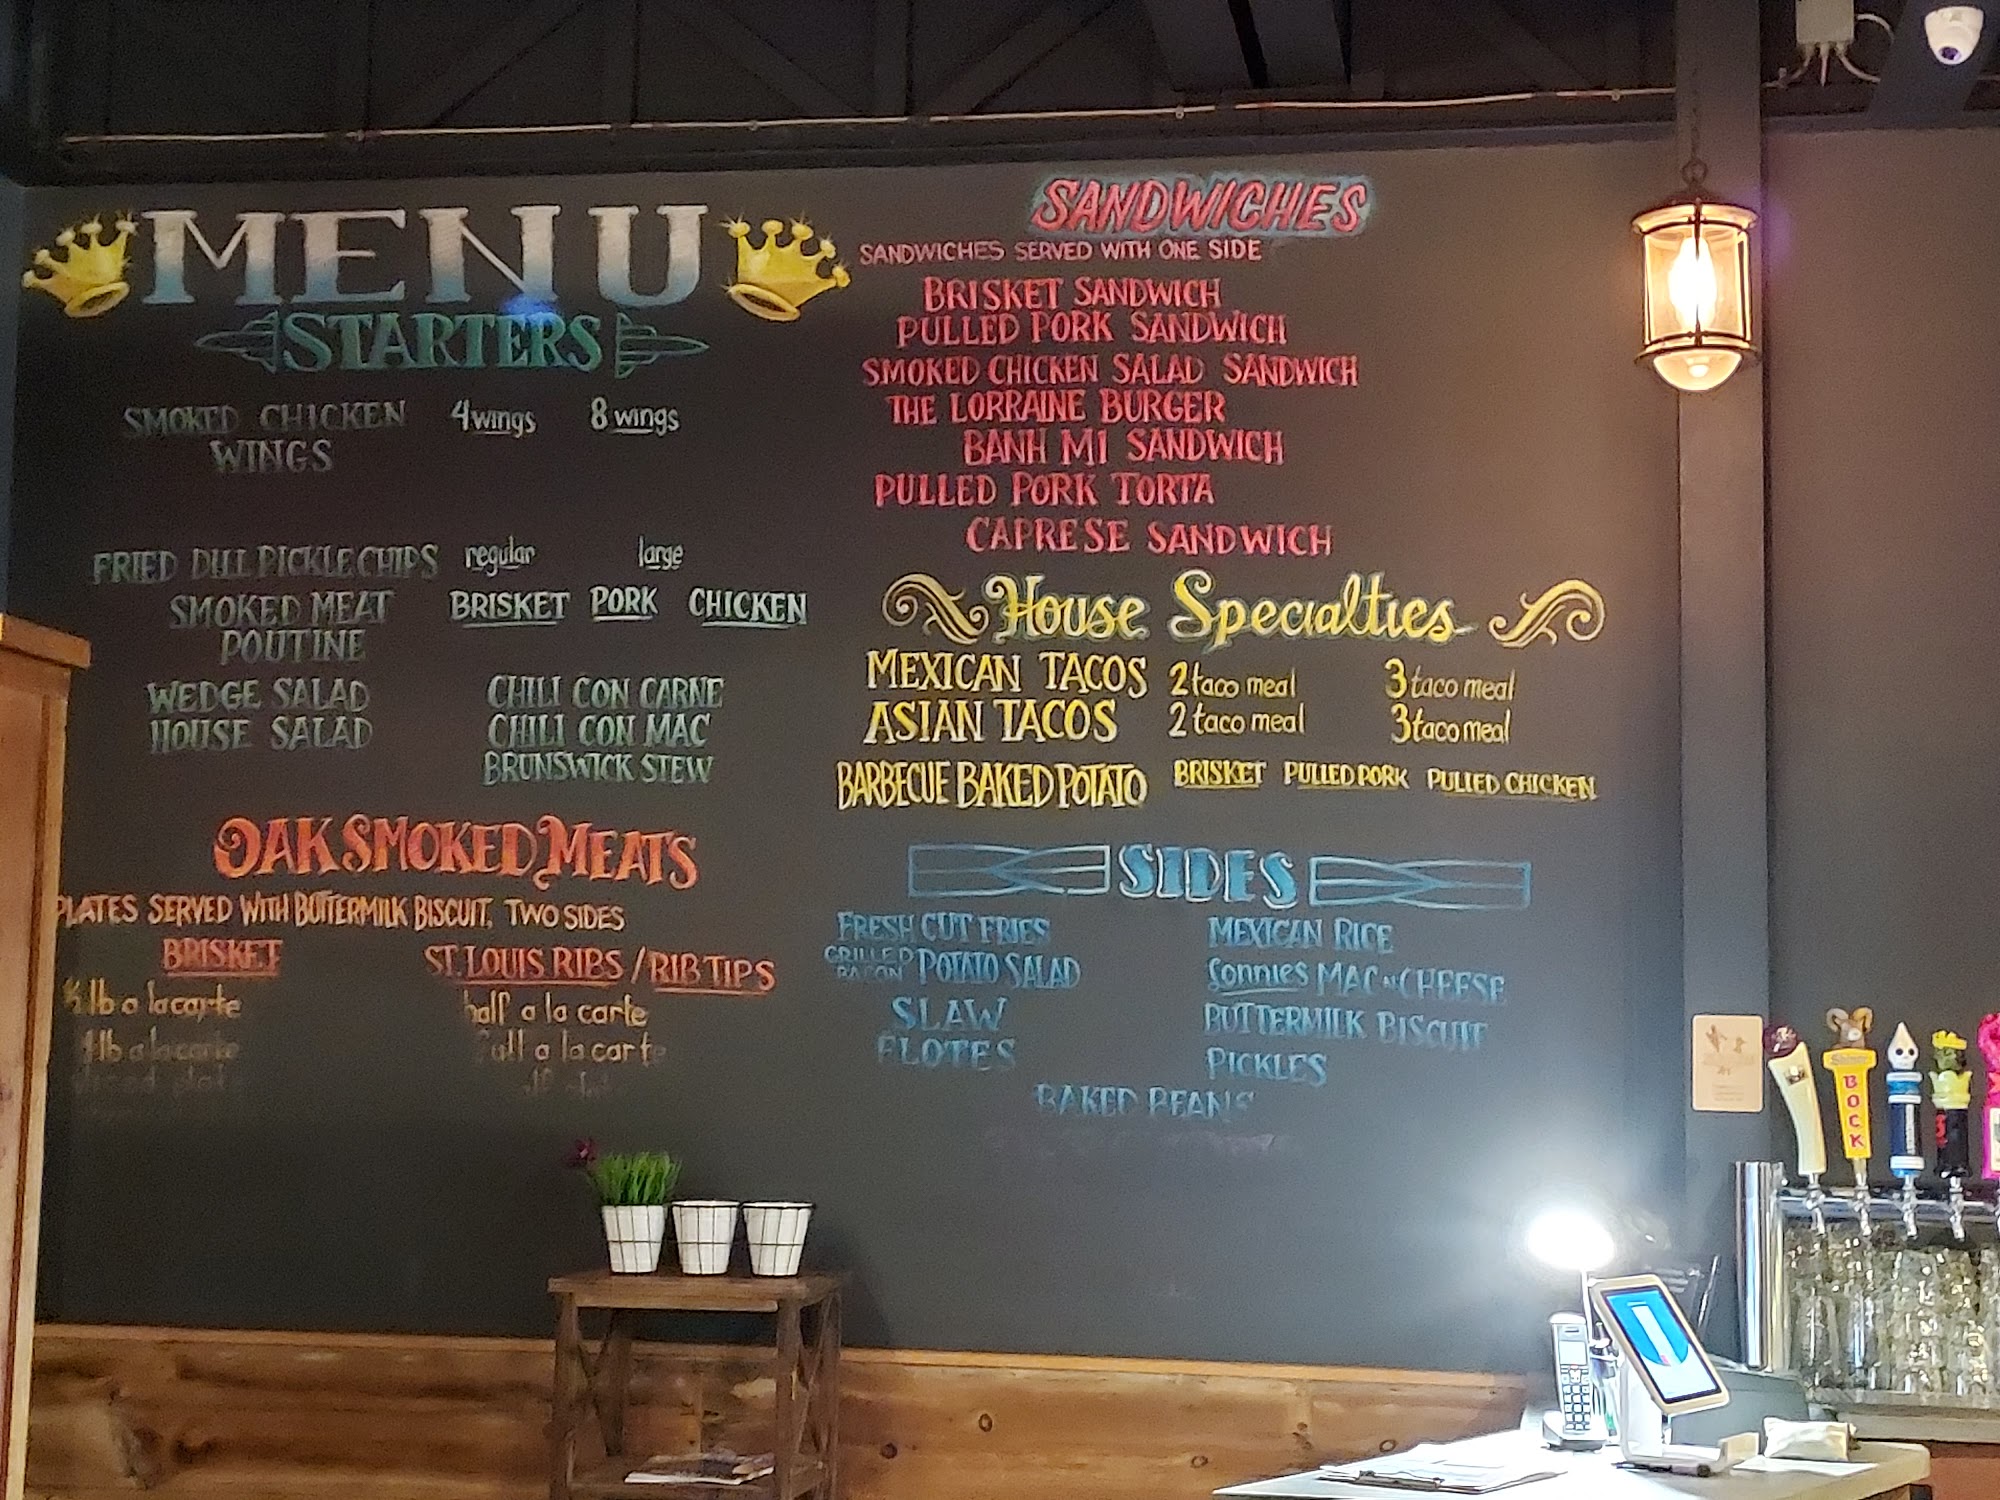 MENU
STARTERS
SMOKED CHICKEN WINGS 4 wings 8 wings
FRIED DILL PICKLE CHIPS regular large
SMOKED MEAT POUTINE BRISKET PORK CHICKEN
WEDGE SALAD
HOUSE SALAD
CHILI CON CARNE
CHILI CON MAC
BRUNSWICK STEW
OAK SMOKED MEATS
PLATES SERVED WITH BUTTERMILK BISCUIT, TWO SIDES
BRISKET
½ lb a la carte
lb a la carte
ST. LOUIS RIBS / RIB TIPS
half a la carte
full a la carte
SANDWICHES
SANDWICHES SERVED WITH ONE SIDE
BRISKET SANDWICH
PULLED PORK SANDWICH
SMOKED CHICKEN SALAD SANDWICH
THE LORRAINE BURGER
BANH MI SANDWICH
PULLED PORK TORTA
CAPRESE SANDWICH
House Specialties
MEXICAN TACOS 2 taco meal 3 taco meal
ASIAN TACOS 2 taco meal 3 taco meal
BARBECUE BAKED POTATO BRISKET PULLED PORK PULLED CHICKEN
SIDES
FRESH CUT FRIES
GRILLED BACON POTATO SALAD
SLAW
ELOTES
MEXICAN RICE
Lonnies MAC N CHEESE
BUTTERMILK BISCUIT
PICKLES
BAKED BEANS
BOCK